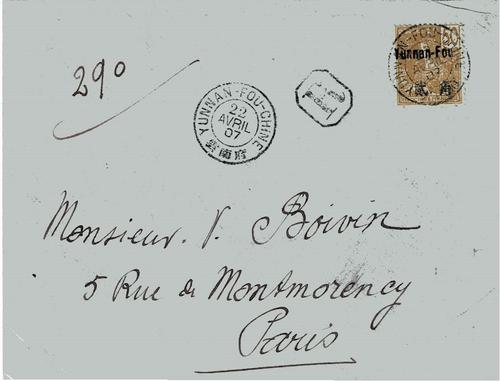 290
YUNNAN-FOU-CHINE
22
AVRIL
07
雲南府
R
50
Yunnan-Fou
YUNNAN-FOU
07
Monsieur. V. Boivin
5 Rue de Montmorency
Paris